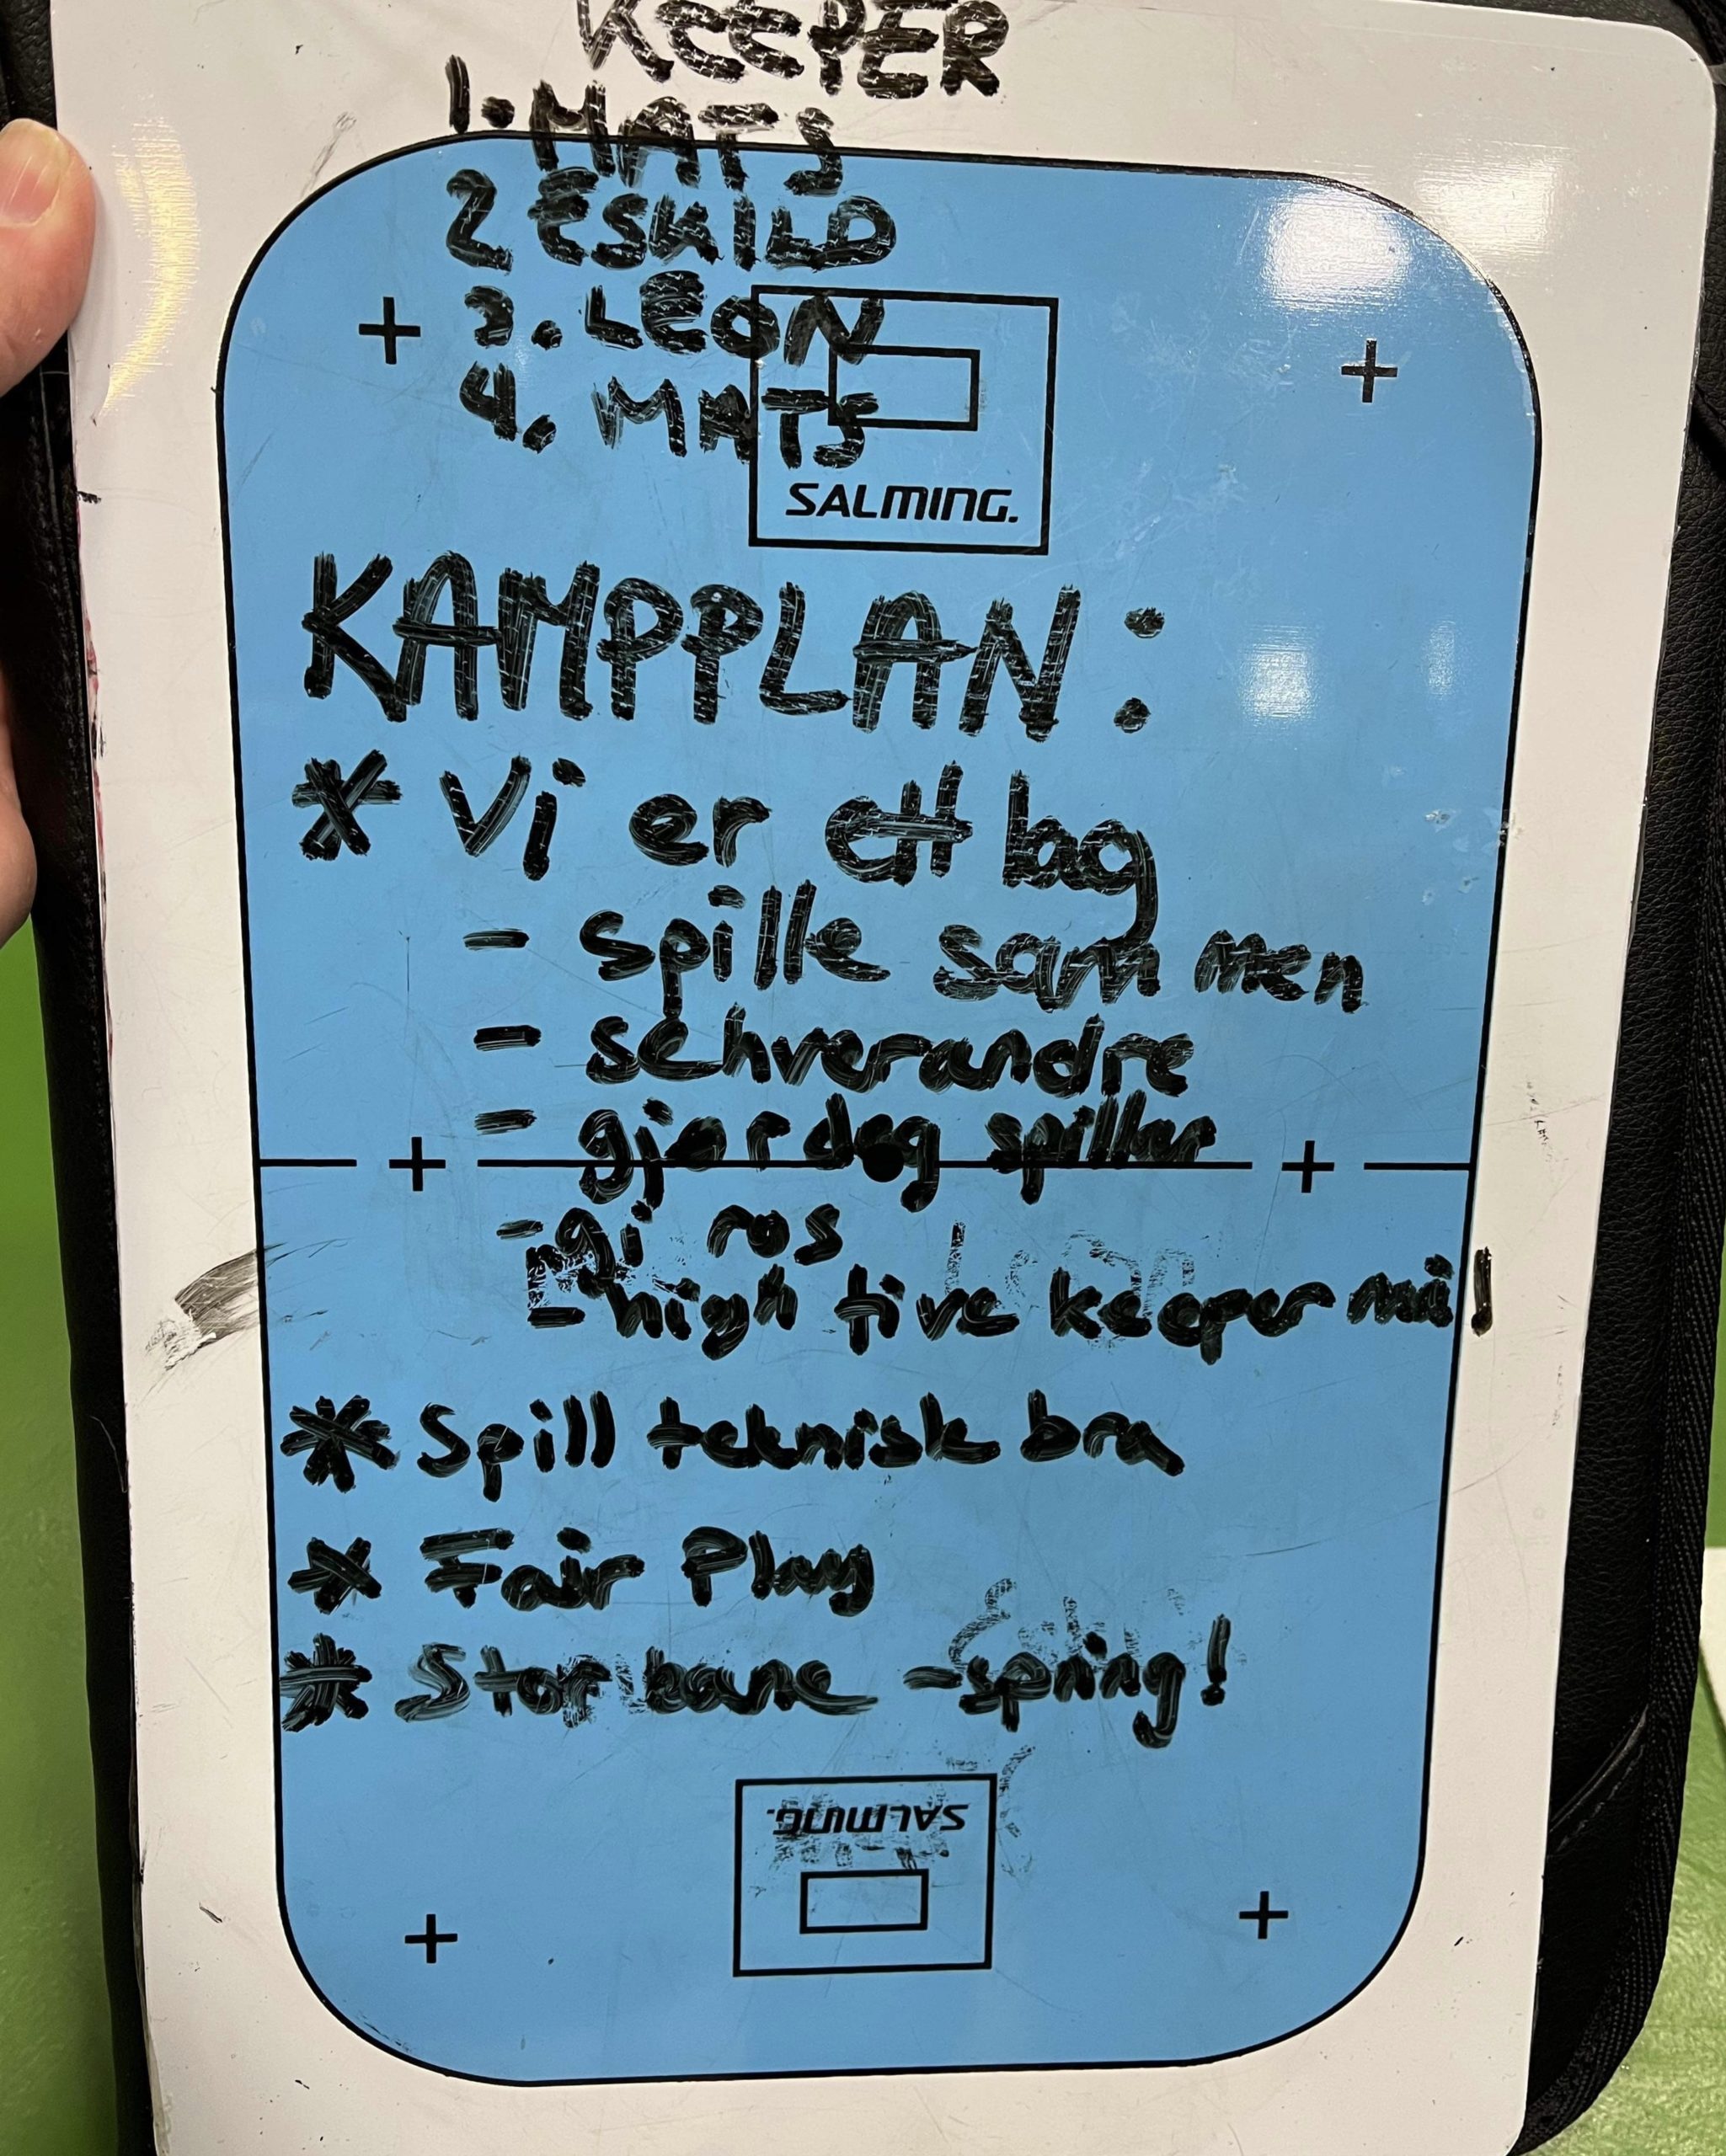 KEEPER
1. MATS
2 ESKILD
3. LEON
4. MATS
SALMING.
KAMPPLAN:
* Vi er ett lag
- spille sammen
- se hverandre
- gjør deg spillbar
- gi ros
- high five keeper mål
* Spill teknisk bra
* Fair Play
* Stor bane - spring!
SALMING.